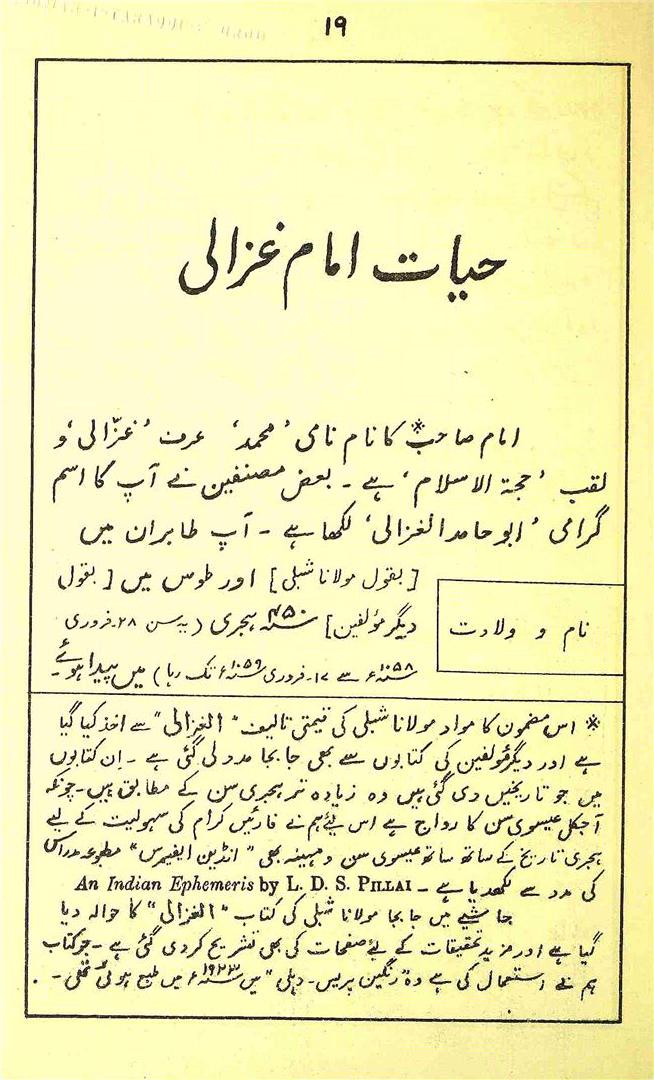 ۱۹
حیات امام غزالی
امام صاحب* کا نام نامی ’محمد‘ عرف ’غزّالی‘ و
لقب ’حجۃ الاسلام‘ ہے ۔ بعض مصنفین نے آپ کا اسم
گرامی ’ابو حامد الغزالی‘ لکھا ہے ۔ آپ طابران میں
[بقول مولانا شبلی] اور طوس میں [بقول
دیگر مؤلفین] ۴۵۰؁ ہجری (یہ سن ۲۸۔فروری
۱۰۵۸؁ء سے ۱۷۔فروری ۱۰۵۹؁ء تک رہا) میں پیدا ہوئے۔
نام و ولادت
* اس مضمون کا مواد مولانا شبلی کی قیمتی تالیف "الغزالی" سے اخذ کیا گیا
ہے اور دیگر مؤلفین کی کتابوں سے بھی جا بجا مدد لی گئی ہے ۔ ان کتابوں
میں جو تاریخیں دی گئی ہیں وہ زیادہ تر ہجری سن کے مطابق ہیں۔ چونکہ
آجکل عیسوی سن کا رواج ہے اس لئے ہم نے قارئین کرام کی سہولیت کے لیے
ہجری تاریخ کے ساتھ ساتھ عیسوی سن و مہینہ بھی "انڈین ایفیمرس" مطبوعہ مدراس
کی مدد سے لکھدیا ہے ۔ An Indian Ephemeris by L. D. S. PILLAI
حاشیے میں جا بجا مولانا شبلی کی کتاب "الغزالی" کا حوالہ دیا
گیا ہے اور مزید تحقیقات کے لئے صفحات کی بھی تشریح کر دی گئی ہے ۔ جو کتاب
ہم نے استعمال کی ہے وہ "رنگین پریس۔ دہلی" میں ۱۹۲۳؁ء میں طبع ہوئی تھی ۔